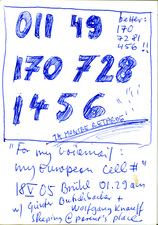 011 49
better:
170
7281
456 !!
170 728
1456
"For my voicemail:
my European cell #"
18 V 05 Brühl 01.29 am
w/ Günter
+ Wolfgang Knauff
sleeping @ parent's place